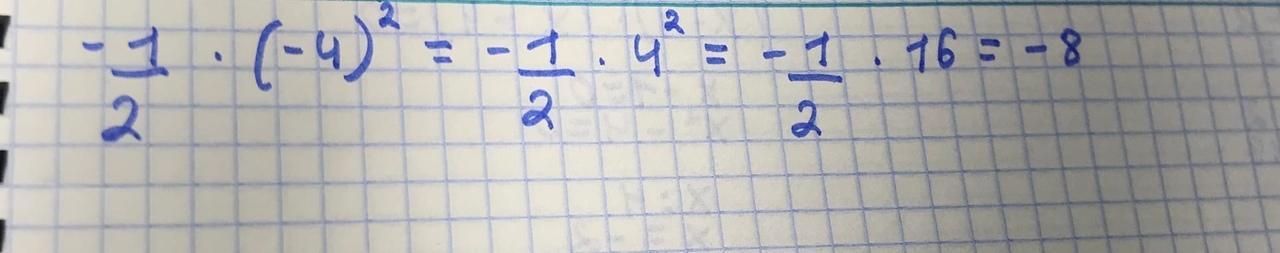 -1/2 · (-4)² = -1/2 · 4² = -1/2 · 16 = -8